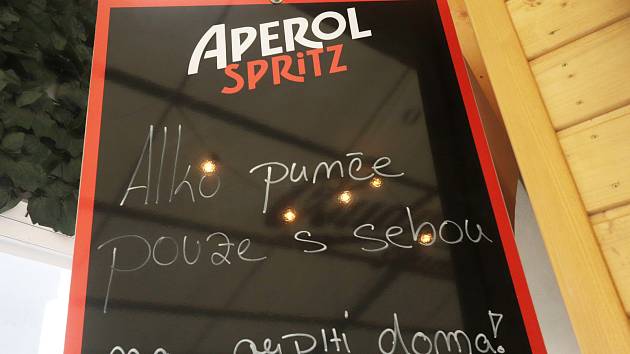 APEROL
SPRITZ
Alko punče
pouze s sebou
doma!